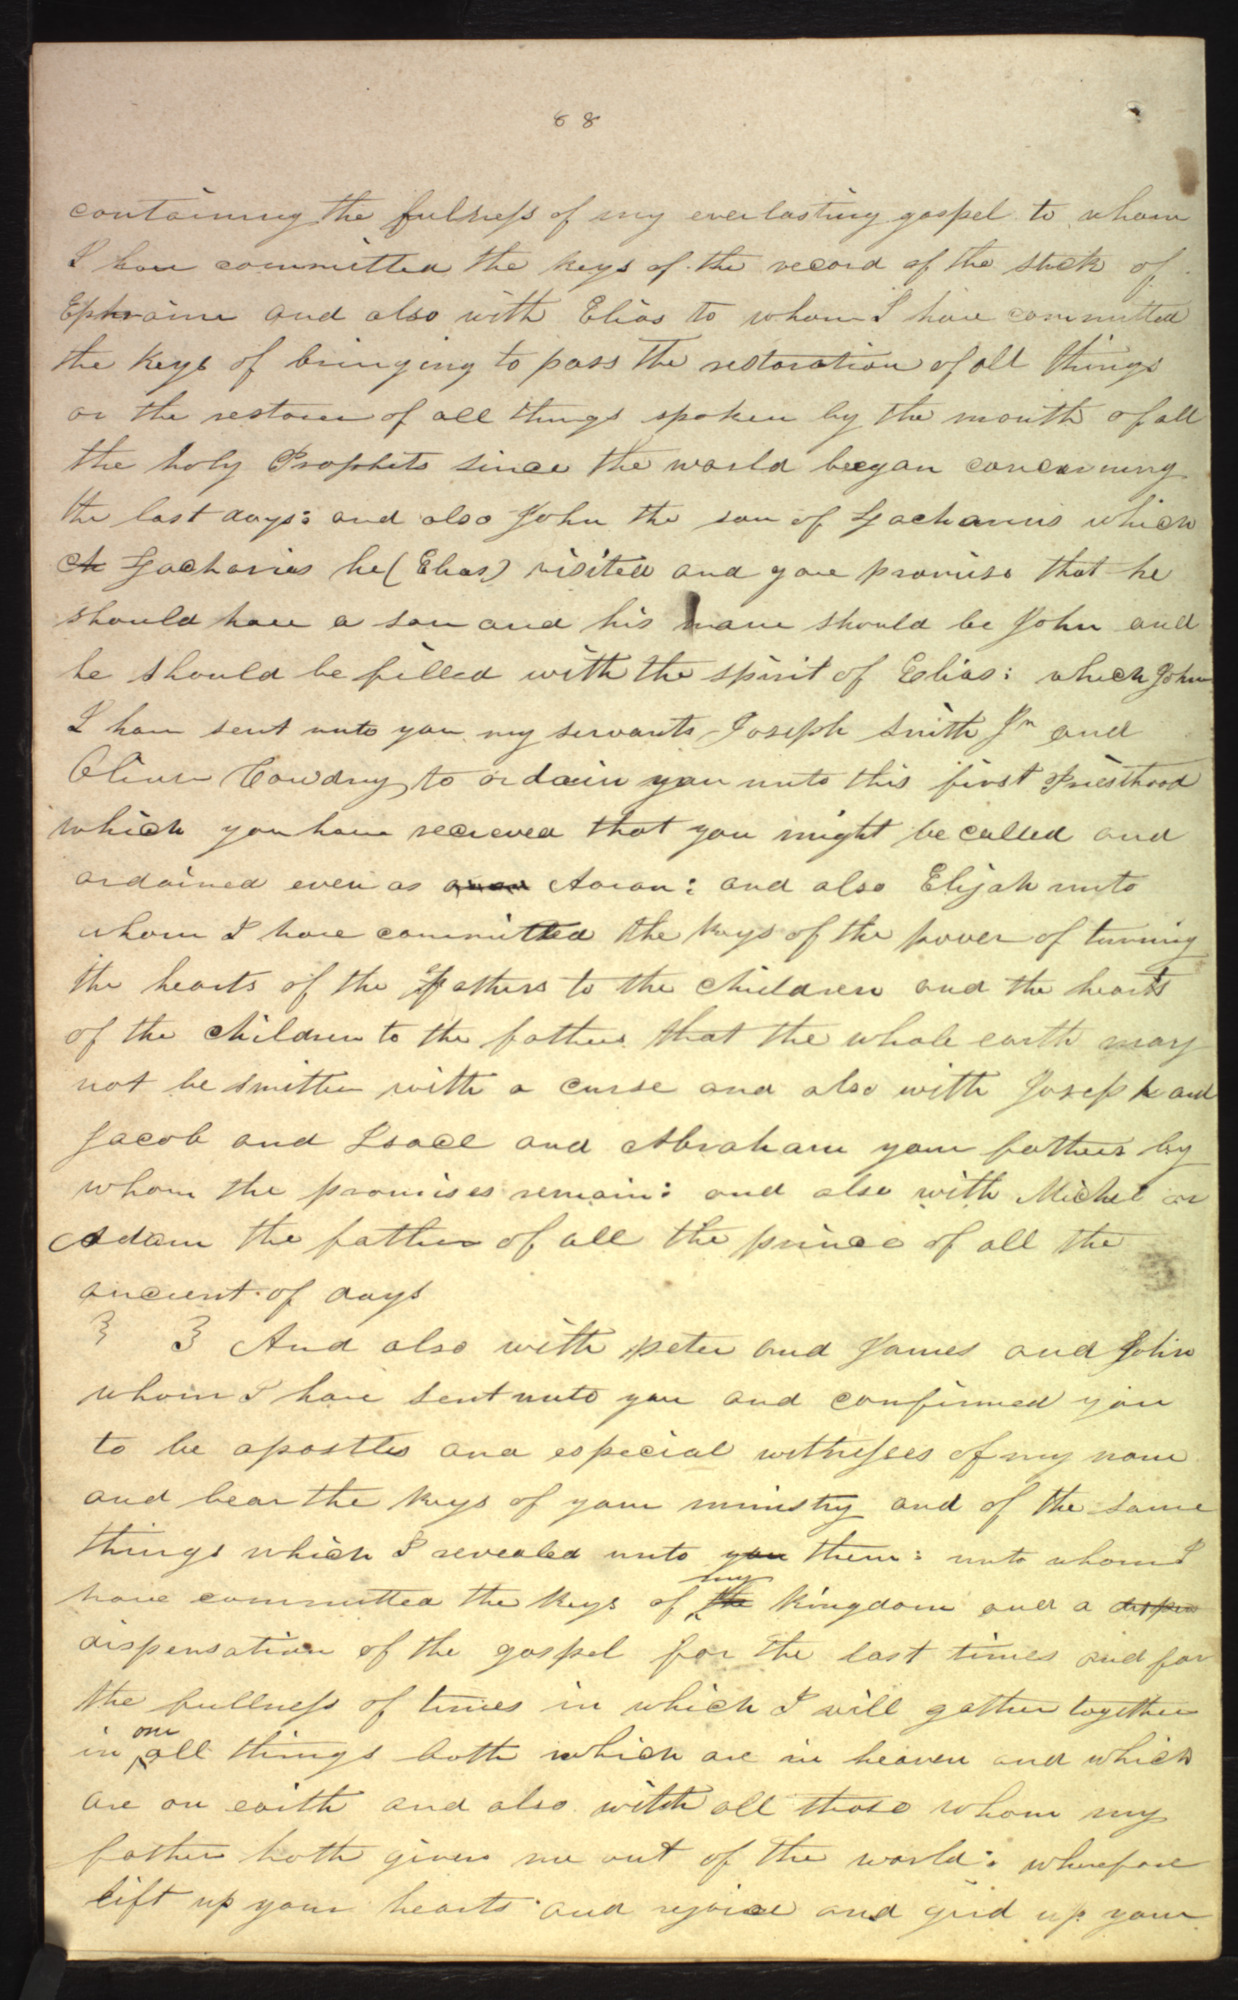 68
containing the fulness of my everlasting gospel to whom
I have committed the keys of the record of the stick of
Ephraim and also with Elias to whom I have committed
the keys of bringing to pass the restoration of all things
or the restorer of all things spoken by the mouth of all
the holy Prophets since the world began concerning
the last days: and also John the son of Zacharius which
Zacharias he (Elias) visited and gave promise that he
should have a son and his name should be John and
he should be filled with the spirit of Elias: which John
I have sent unto you my servants Joseph Smith Jr and
Oliver Cowdry to ordain you unto this first Priesthood
which you have recieved that you might be called and
ordained even as Aaron: and also Elijah unto
whom I have committed the keys of the power of turning
the hearts of the Fathers to the children and the hearts
of the children to the fathers that the whole earth may
not be smitten with a curse and also with Joseph and
Jacob and Isaac and Abraham your fathers by
whom the promises remain: and also with Michel or
Adam the father of all the prince of all the
ancient of days
3 And also with peter and James and John
whom I have sent unto you and confirmed you
to be apostles and especial witnesses of my name
and bear the keys of your ministry and of the same
things which I revealed unto you them: unto whom I
my
have committed the keys of the kingdom and a dispen
dispensation of the gospel for the last times and for
the fullness of times in which I will gather together
one
in all things both which are in heaven and which
are on earth and also with all those whom my
father hath given me out of the world: wherefore
lift up your hearts and rejoice and gird up your